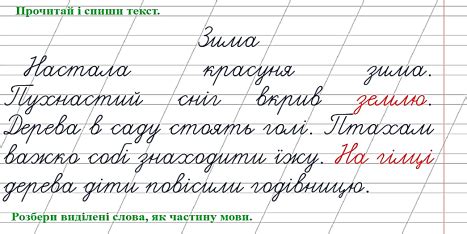 Прочитай і спиши текст.
Зима
Настала красуня зима.
Пухнастий сніг вкрив землю.
Дерева в саду стоять голі. Птахам
важко собі знаходити їжу. На гілці
дерева діти повісили годівницю.
Розбери виділені слова, як частину мови.